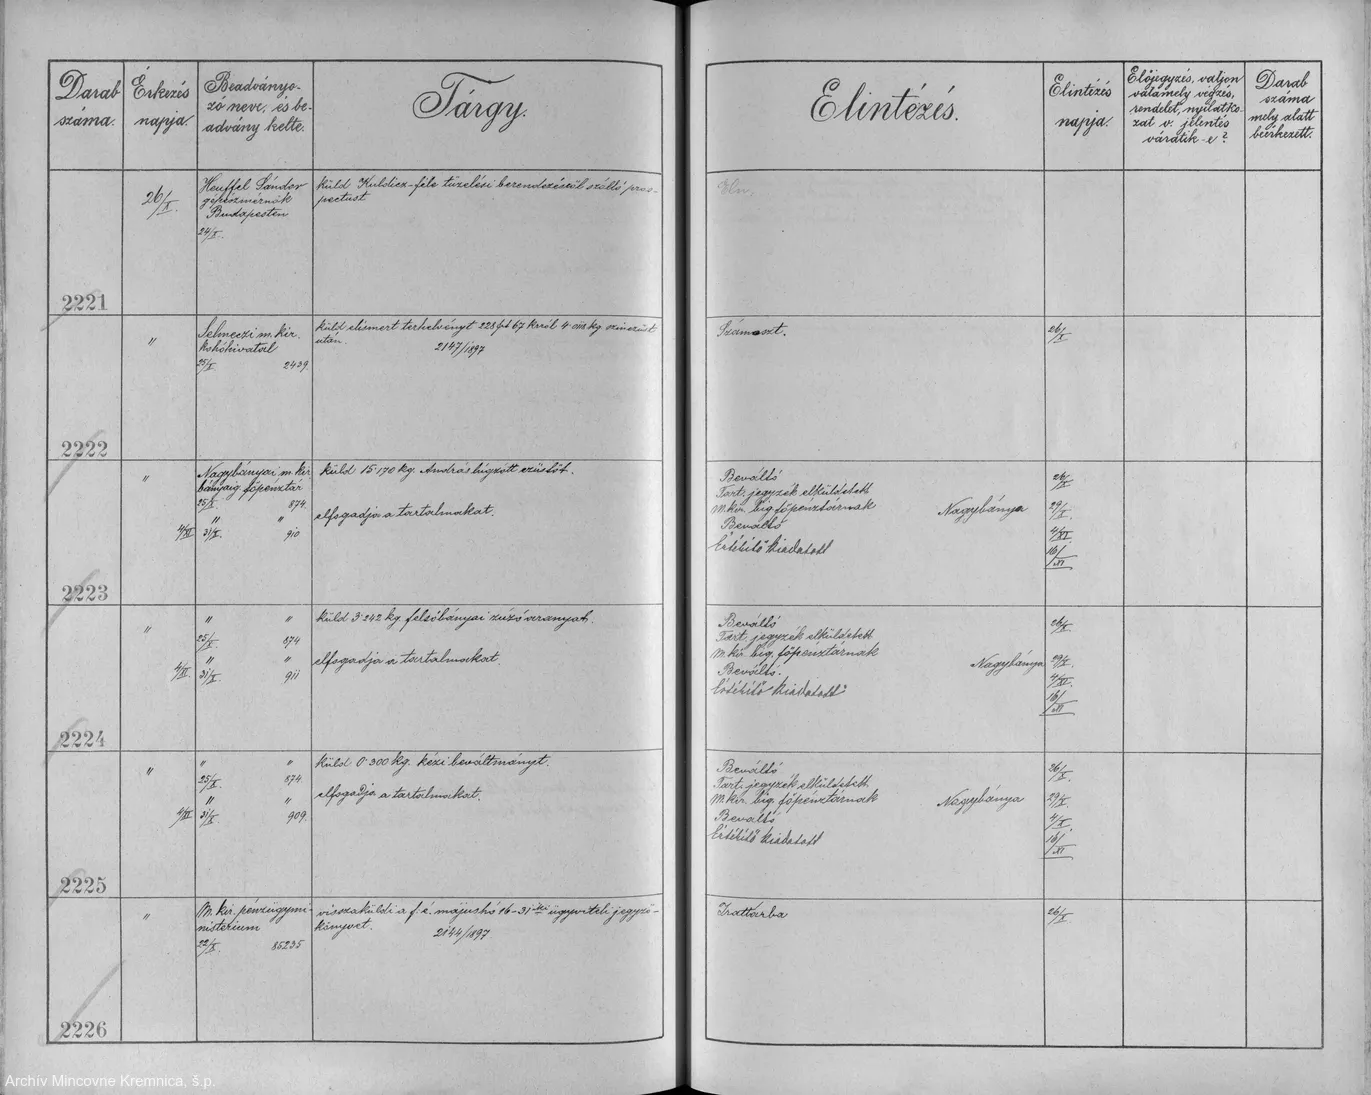 Darab száma.
Érkezés napja.
Beadványozó neve, és beadvány kelte.
Tárgy.
Elintézés.
Elintézés napja.
Előjegyzés, valjon valamely végzés, rendelet, nyilatkozat v. jelentés váratik-e?
Darab száma mely alatt beérkezett.
2221
26/X.
Heuffel Sándor
gépészmérnök
Budapesten
24/X.
küld Kuldicz-féle tüzelési berendezésről szóló pros-
pectust
Eln.
2222
"
Selmeczi m. kir.
kohóhivatal
25/X. 2439.
küld elismert terhelvényt 228 frt 67 krról 4·018 kg színezüst
után. 2147/1897
Számoszt.
26/X
2223
"
Nagybányai m. kir.
bányaig. főpénztár
25/X. 874.
küld 15·170 kg. András lúgzott ezüstöt.
" "
4/XI 31/X. 910
elfogadja a tartalmakat.
Beváltó 26/X
Tart. jegyzék elküldetett
m. kir. big. főpénztárnak Nagybánya 29/X.
Beváltó 4/XI.
Értéktő kiadatott 16/XI
2224
"
" "
25/X. 874
küld 3·242 kg. felsőbányai zúzó aranyat.
" "
4/XI. 31/X. 911
elfogadja a tartalmakat.
Beváltó 26/X.
Tart. jegyzék elküldetett
m. kir. big. főpénztárnak
Nagybánya 29/X.
Beváltó. 4/XI.
kiadatott 16/XI
2225
"
" "
25/X. 874
küld 0·300 kg. kézi beváltmányt.
" "
4/XI 31/X. 909.
elfogadja a tartalmakat.
Beváltó 26/X.
Tart. jegyzék elküldetett
m. kir. big. főpénztárnak Nagybánya 29/X.
Beváltó 4/X.
kiadatott 16/XI
2226
"
M. kir. pénzügymi-
nisterium
22/X. 85235
visszaküldi a f. é. májushó 16-31iki ügyviteli jegyző-
könyvet. 2144/1897
Irattárba
26/X.
Archív Mincovne Kremnica, š.p.